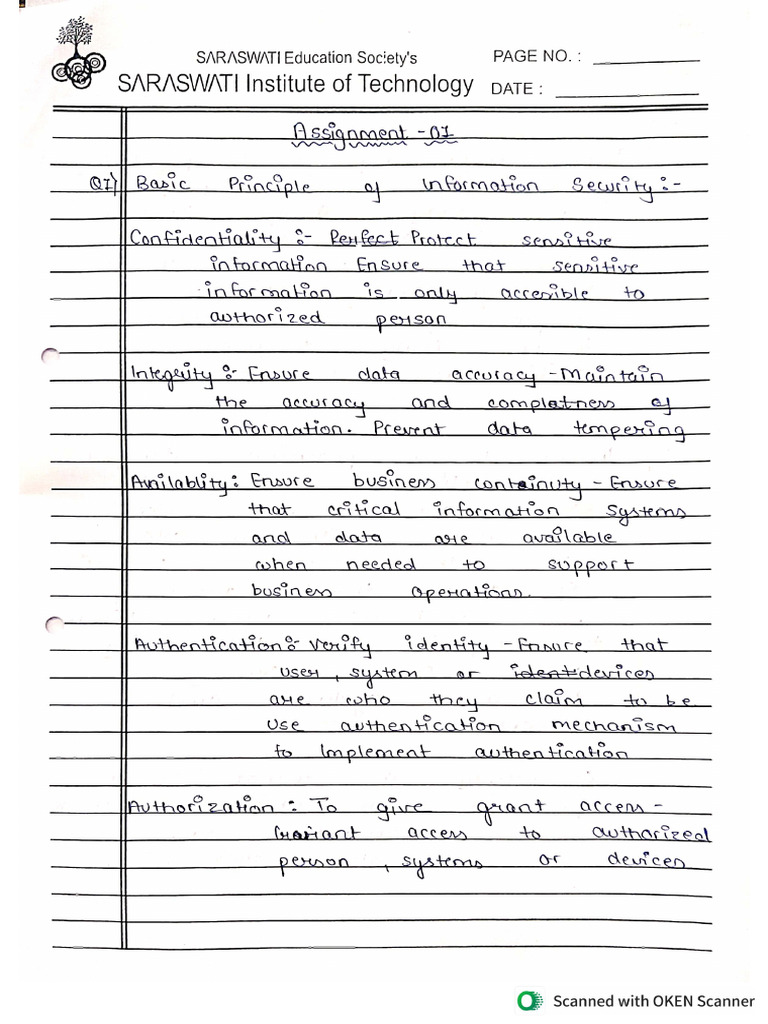 SARASWATI Education Society's
SARASWATI Institute of Technology
PAGE NO. :
DATE :
Assignment - 01
Q1) Basic Principle of Information Security :-
Confidentiality :- Perfect Protect sensitive
information Ensure that sensitive
information is only accesible to
authorized person
Integrity :- Ensure data accuracy - Maintain
the accuracy and completness of
information. Prevent data tempering
Availablity : Ensure business contoinuty - Ensure
that critical information systems
and data are available
when needed to support
business operations.
Authentication :- Verify identity - Ensure that
user, system or ident devices
are who they claim to be
use authentication mechanism
to implement authentication
Authorization : To give grant access -
access to authorized
person, systems or devices
Scanned with OKEN Scanner